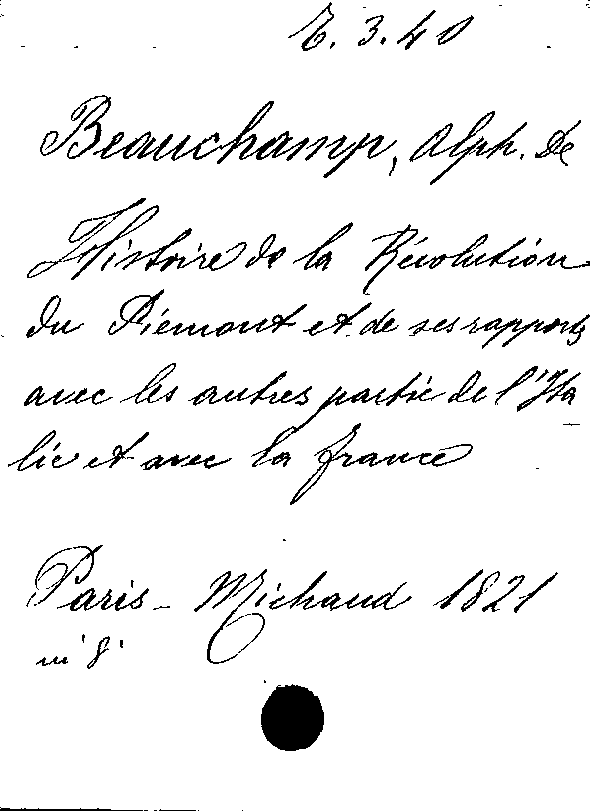 E. 3. 40
Beauchamp, Alph. De
Histoire de la Révolution
du Piémont et de ses rapports
avec les autres partie de l'Ita
lie et avec la france
Paris - Michaud 1821
in 8°